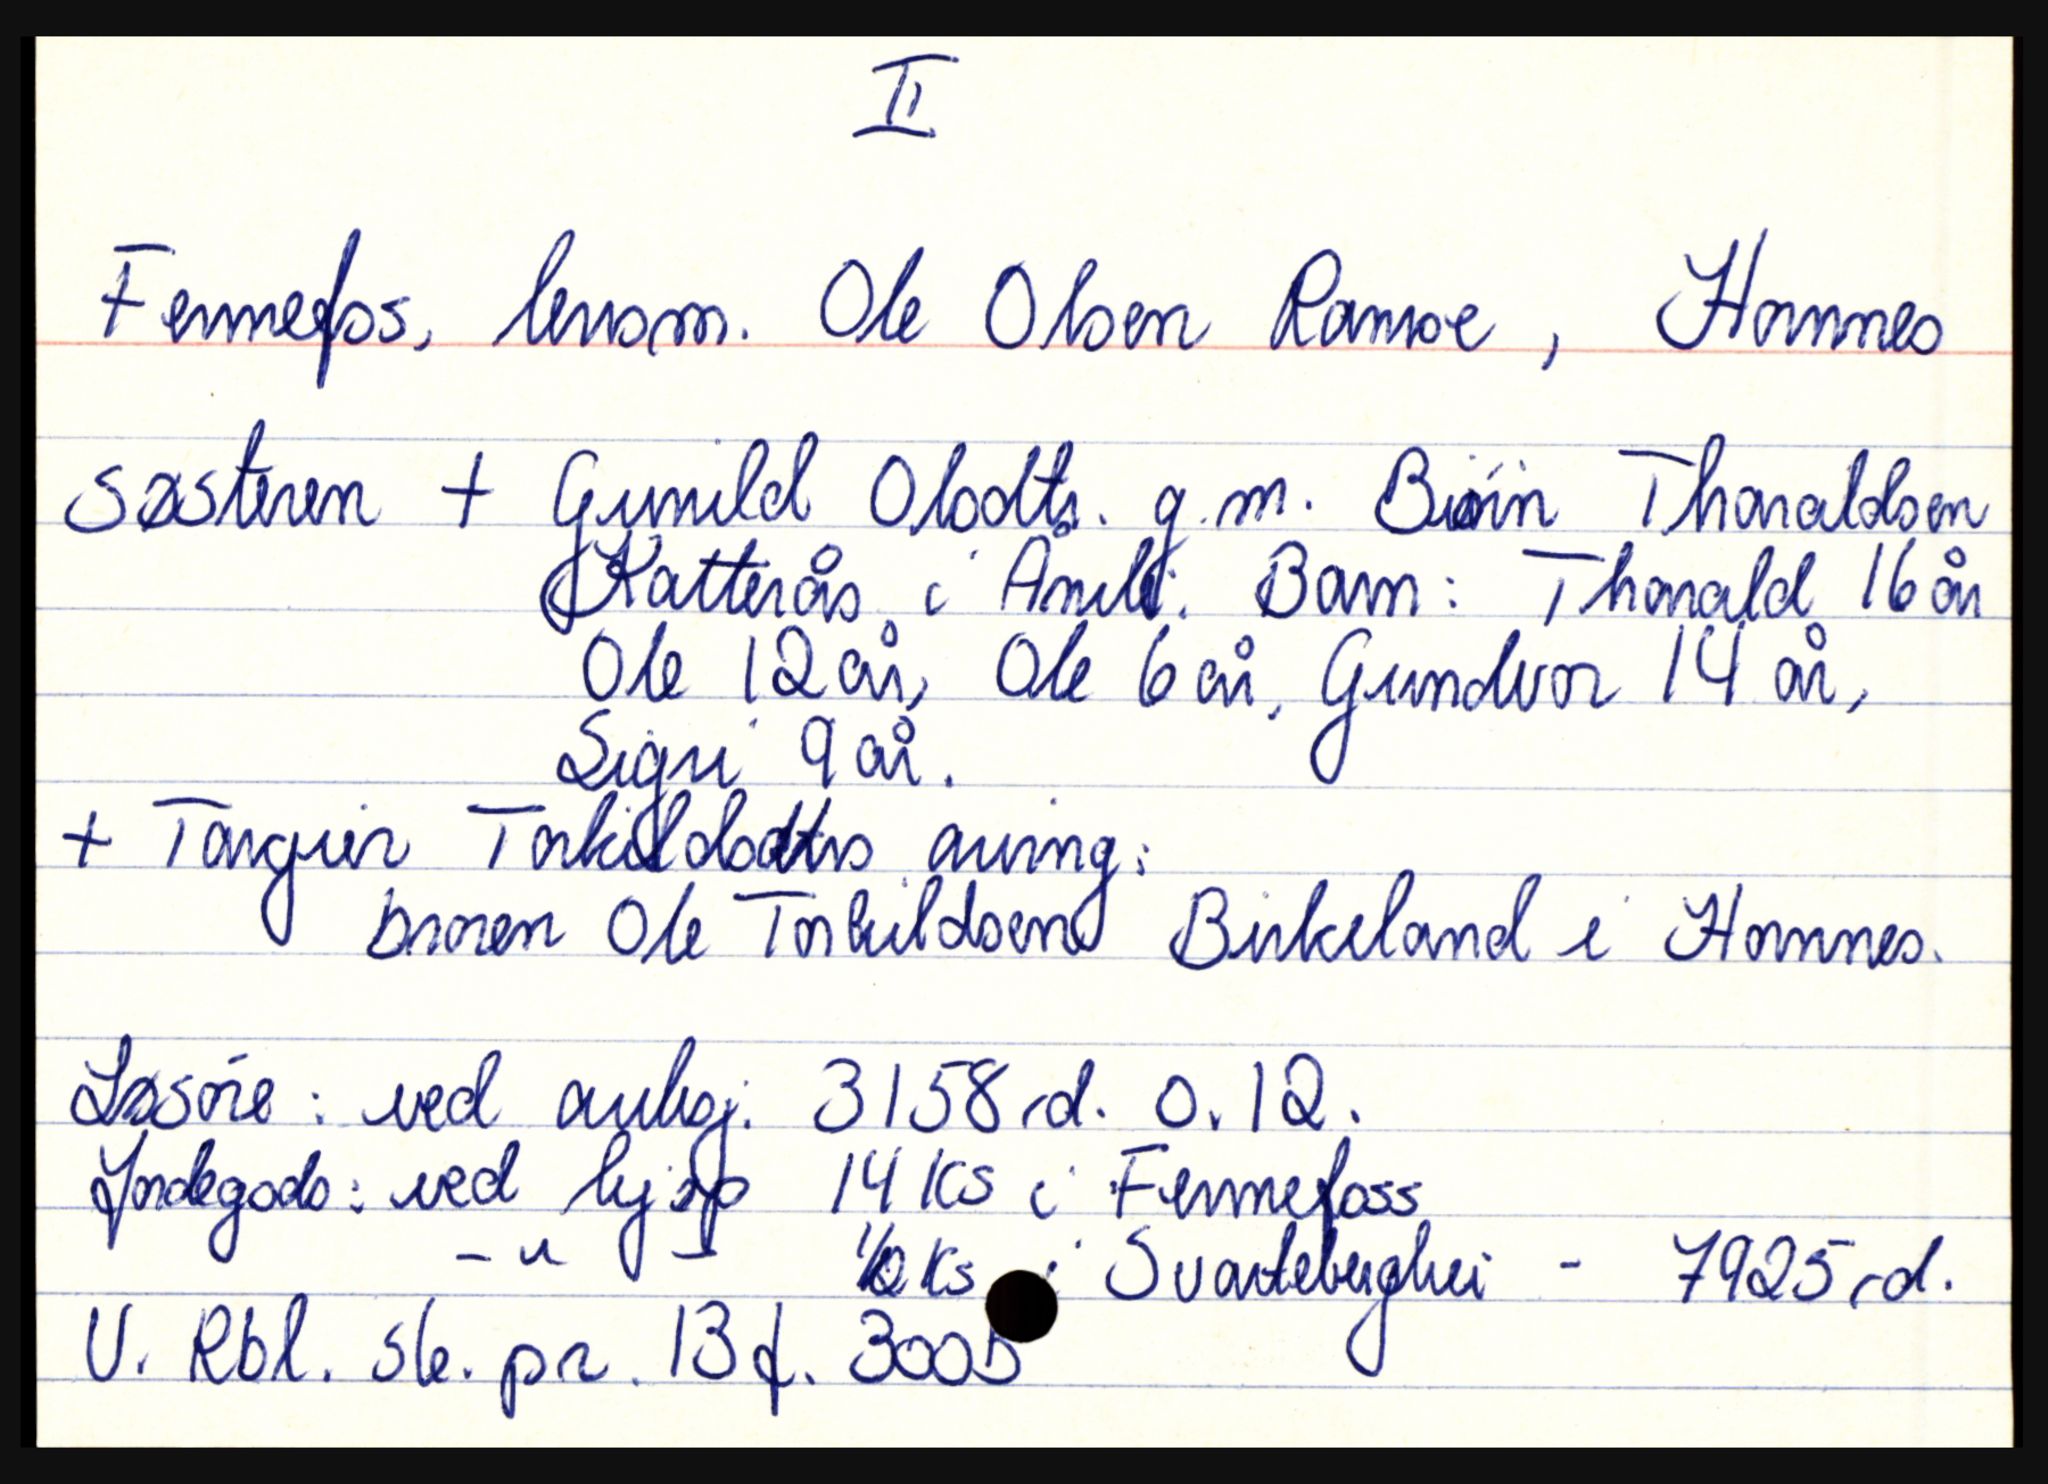 II
Fennefos, lensm. Ole Olsen Ramse, Hornnes
søsteren + Gunild Olsdtr. g.m. Biørn Thoraldsen
Katterås i Åmli. Barn: Thorald 16 år
Ole 12 år, Ole 6 år, Gundvor 14 år,
Sigri 9 år.
+ Targier Torkildsdtrs arving:
broren Ole Torkildsen Birkeland i Hornnes.
Løsøre: ved auksj. 3158 rd. 0. 12.
Jordegods: ved kjøp 14 Ks i Fennefoss
- " - 1/2 Ks i Svarteberghei - 7925 rd.
V. Rbl. sk. pr. 13 f. 300b